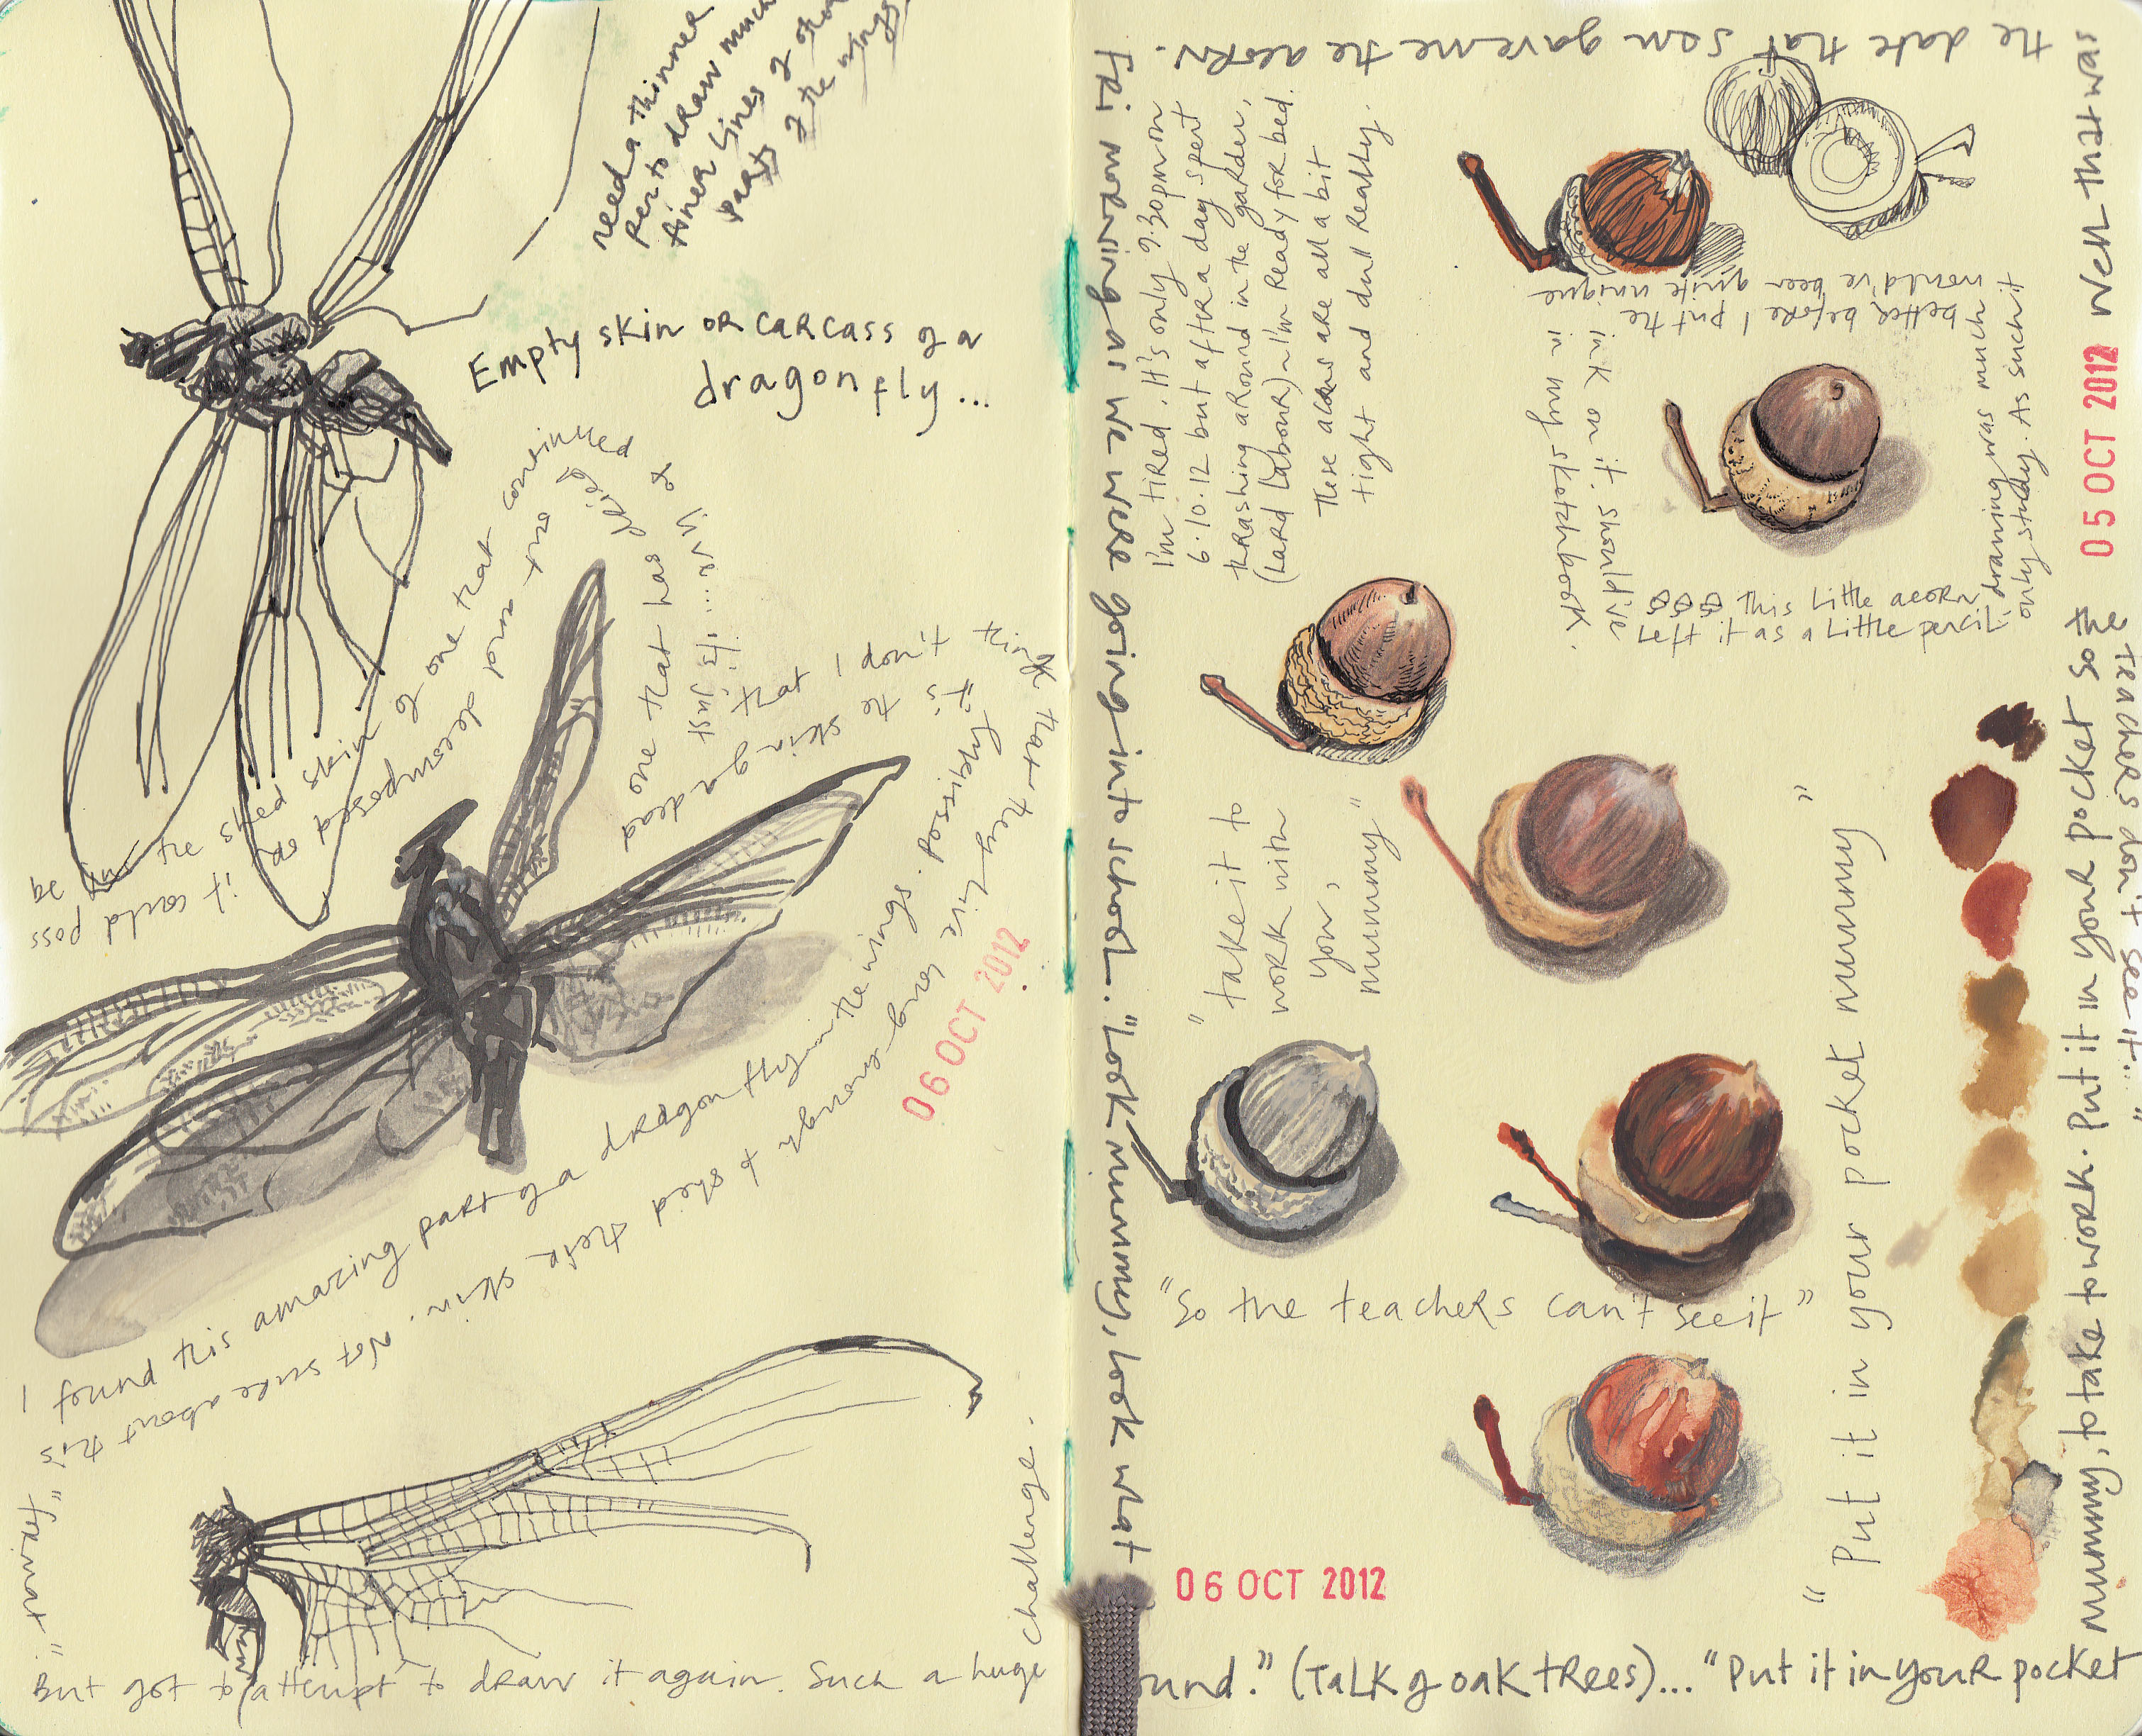 need a thinner
pen to draw much
finer lines of other
parts of the wings
Empty skin or carcass of a
dragonfly...
one that has
skin of a dead
that I don't
think that they live
long enough to shed their skin.
Not sure about this
"format".
be the shed skin of one that
it could poss
decomposed
I found this amazing part of a dragonfly in the wings.
06 OCT 2012
But got to attempt to draw it again. Such a huge
challenge.
Fri morning as we were going into school. "Look mummy, look what
ound." (Talk of oak trees)... "Put it in your pocket
mummy, to take to work. Put it in your pocket so the
teachers don't see it..."
05 OCT 2012 Well that was
the date that sam gave me the acorn.
I'm tired. It's only 9.30pm on
6.10.12 but after a day spent
thrashing around in the garden,
(hard labour) ~ I'm ready for bed.
These acorns are all a bit
tight and dull really.
This little acorn
drawing was much
better before I put the
ink on it. Should've
left it as a little pencil
only study. As such it
would've been quite unique
in my sketchbook.
"take it to
work with
you,
mummy"
"Put it in your pocket mummy"
"So the teachers can't see it"
06 OCT 2012